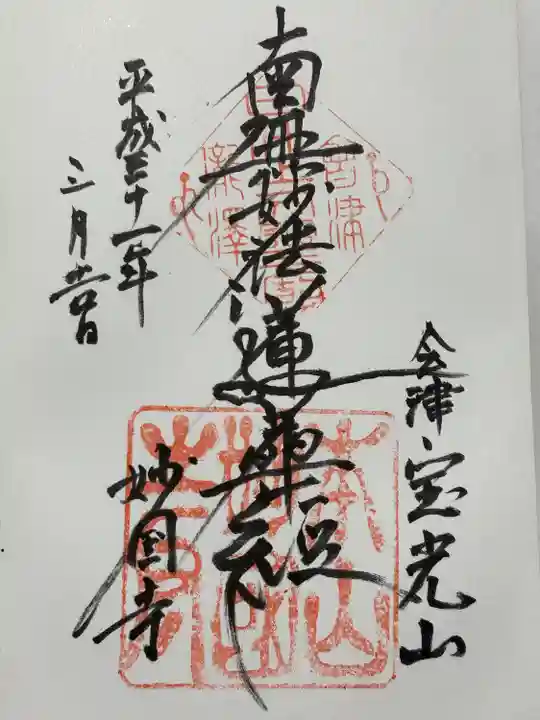 会津宝光山
南無妙法蓮華経
妙国寺
平成三十一年
三月廿四日
會津
瀧澤